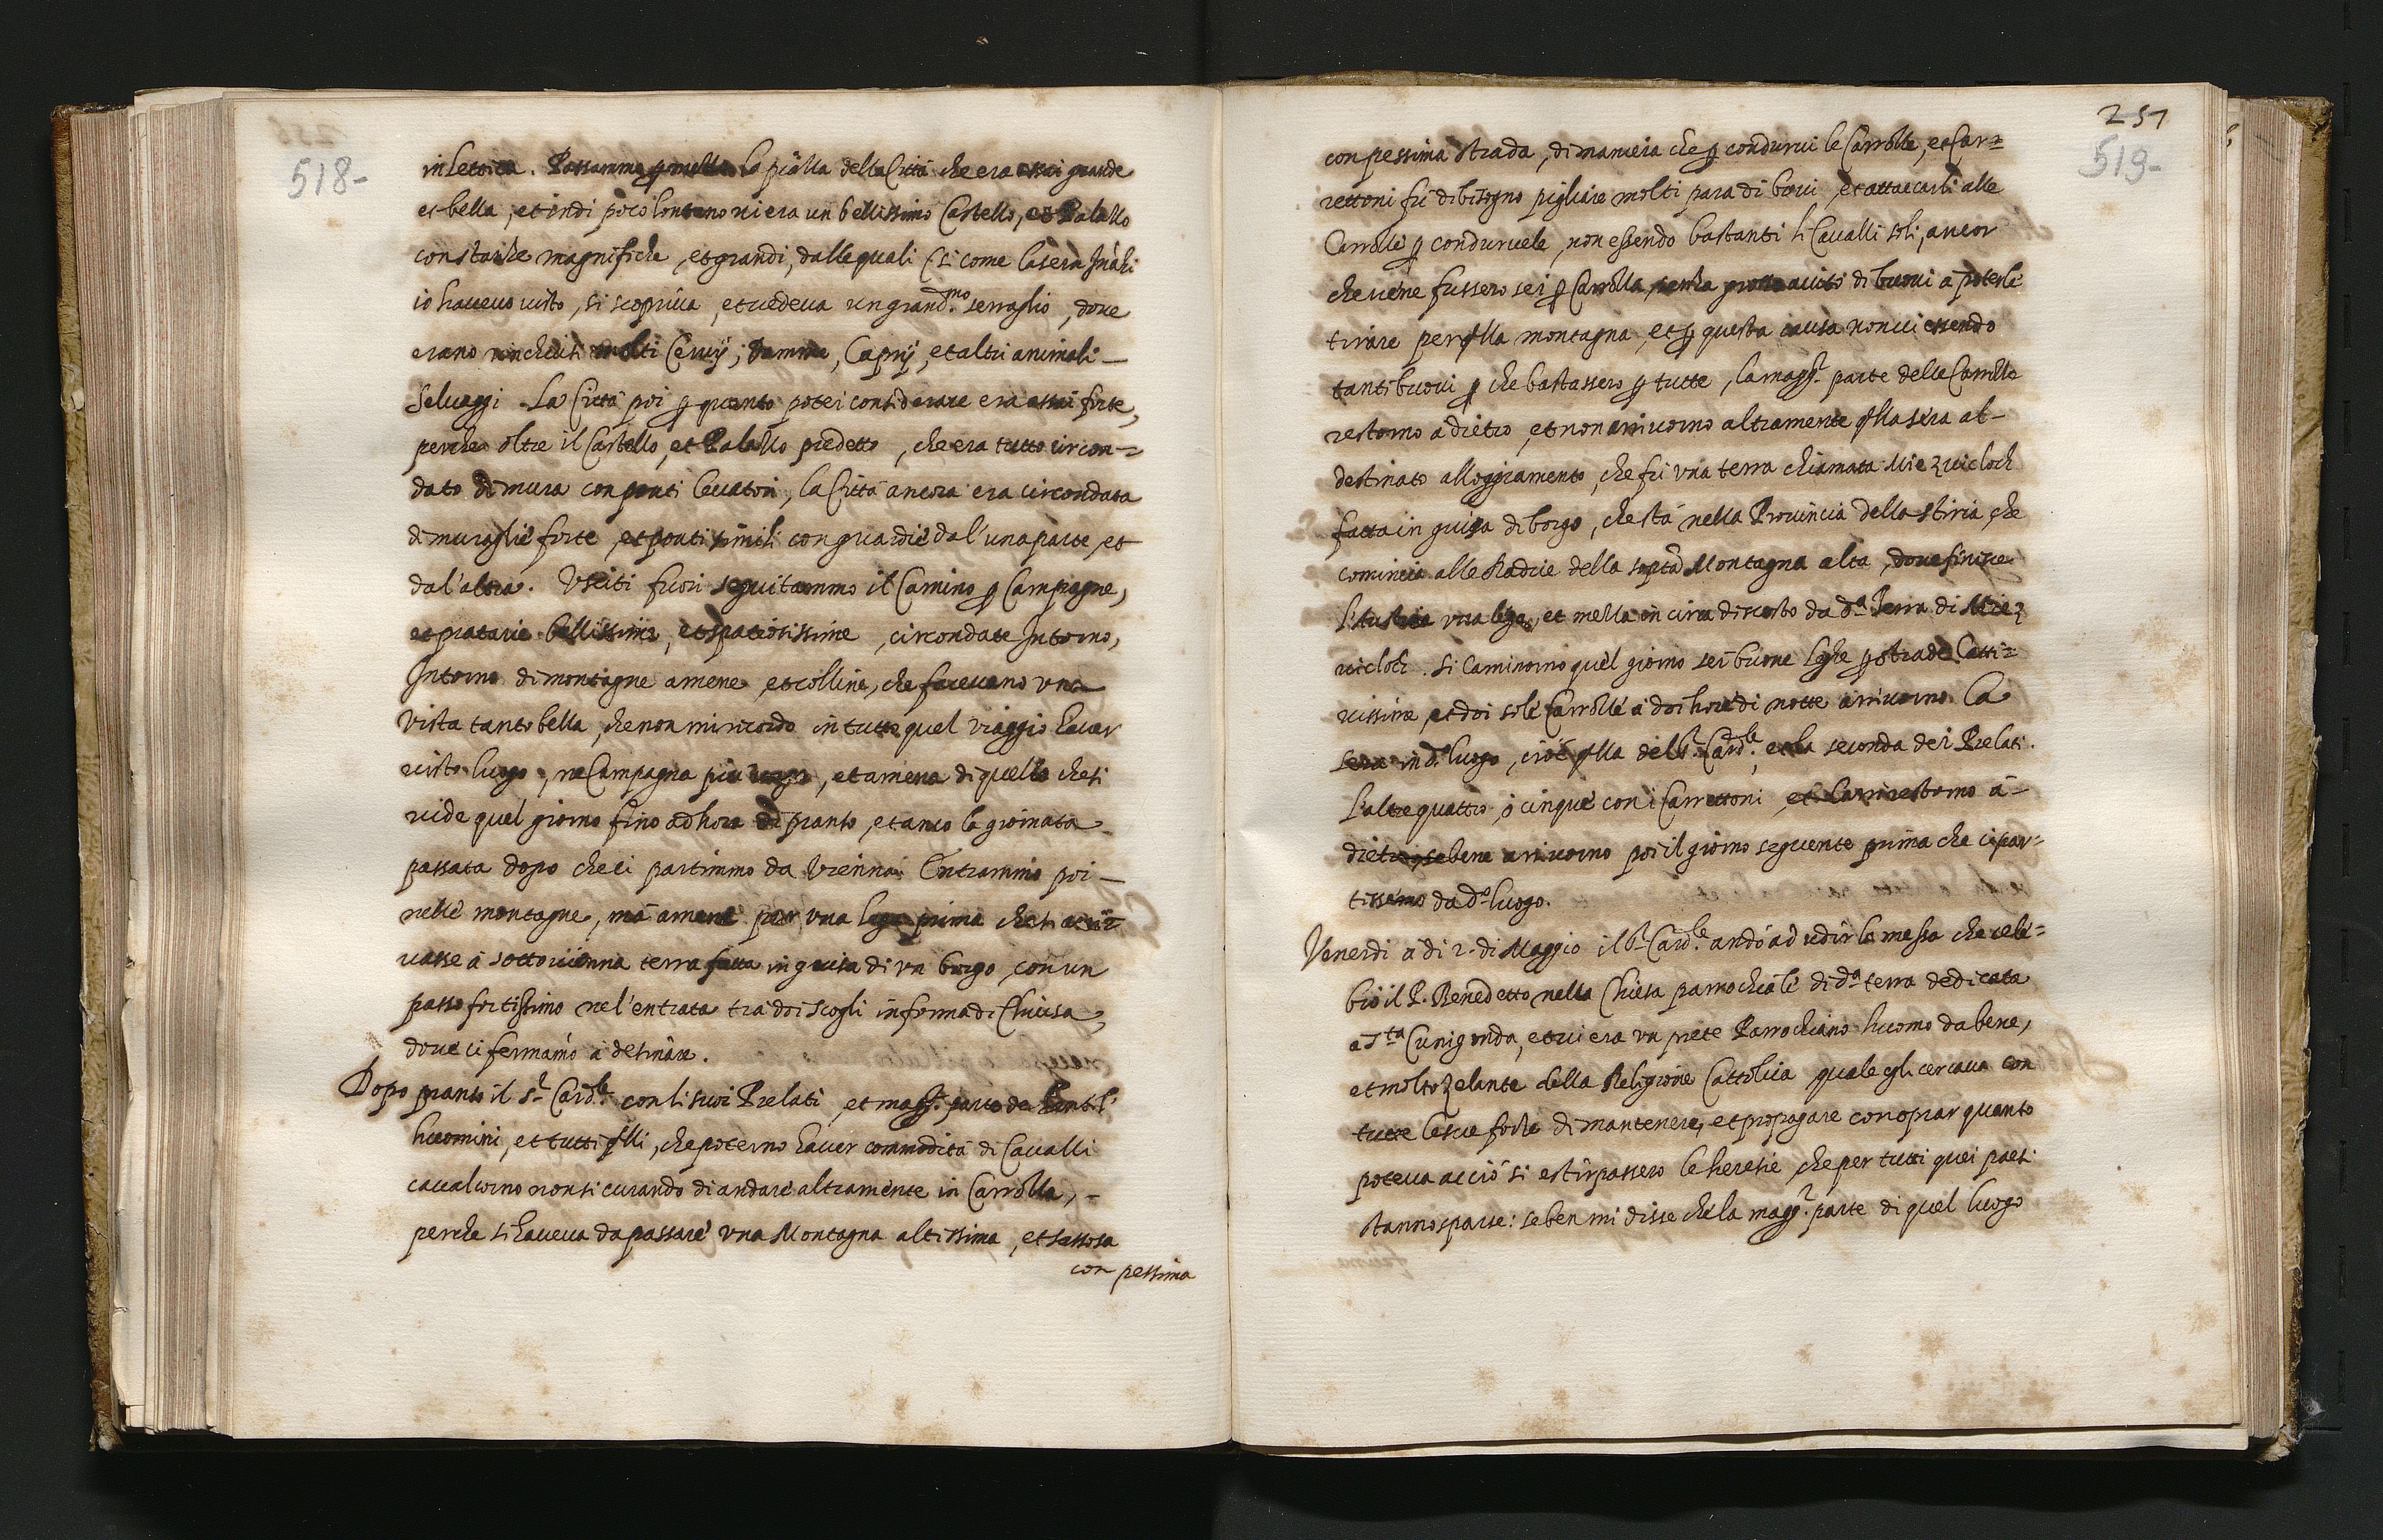 518-
in lettica. Passammo p mezzo la piazza della Città che era assai grande
et bella, et indi poco lontano vi era un bellissimo Castello, et Palazzo
con stanze magnifiche, et grandi, dalle quali (si come la sera inãzi
io havevo visto, si scopriva, et vedeva un grand.mo serraglio, dove
erano rinchiusi molti Cervij, Damme, Caprij, et altri animali
selvaggi. La Città poi p quanto potei considerare era assai forte,
perche oltre il Castello, et Palazzo predetto, che era tutto circon=
dato di mura con ponti levatori, la Città ancora era circondata
di muraglie forte, et ponti simili con guardie dal'una parte, et
dal'altra. Usciti fuori seguitammo il Camino p Campagne,
et pratarie bellissime, et spatiosissime, circondate Intorno,
Intorno di montagne amene, et colline, che facevano una
vista tanto bella, che non mi ricordo in tutto quel viaggio haver
visto luogo, ne Campagna piu vaga, et amena di quella che si
vide quel giorno fino ad hora di pranso, et anco la giornata
passata dopo che ci partimmo da Vienna. Entrammo poi
nelle montagne, mà amene per una lega prima che si arri=
vasse à sottovienna terra fatta in guisa di un borgo, con un
passo fortissimo nel'entrata tra doi scogli in forma di Chiusa,
dove ci fermamo à desinare.
Dopo pranso il s.r Card.le con li suoi Prelati, et magg.r parte de Gentil'
huomini, et tutti qlli, che poterno haver commodità di Cavalli
cavalcorno non si curando di andare altramente in Carrozza,
perche si haveva da passare una Montagna altissima, et sassosa
con pessima
251
519-
con pessima strada, di maniera che p condurvi le Carrozze, et Car=
rettoni fù di bisogno pigliare molti para di bovi, et attaccarli alle
Carrozze p condurvele, non essendo bastanti li Cavalli soli, ancor
che ve ne fussero sei p Carrozza, senza grosso aiuto di buovi à poterle
tirare per qlla montagna, et p questa causa non vi essendo
tanti buovi p che bastassero p tutte, la magg.r parte delle Carrozze
restorno adietro, et non arrivorno altramente qlla sera al
destinato alloggiamento, che fù una terra chiamata Miezvicloch
fatta in guisa di borgo, che stà nella Provincia della Stiria, che
comincia alle Radice della sop.ta Montagna alta, dove finisce
l'Austria una lega, et mezza in circa discosto da d.a Terra di Miez
vicloch. Si caminorno quel giorno sei buone leghe p strade Catti=
vissime, et doi sole Carrozze à doi hore di notte arrivorno la
sera in d.o luogo, cioè qlla del s.r Card.le, et la seconda dei Prelati.
l'altre quattro, ò cinque con i Carrettoni, et Carri restorno à
dietro, se bene arrivorno poi il giorno seguente prima che ci par=
tissemo da d.o luogo.
Venerdi à di 2. di Maggio il s.r Card.le andò ad udir la messa che cele=
brò il P. Benedetto nella Chiesa parrochiale di d.a terra dedicata
a S.ta Cunigonda, et vi era un prete Parrochiano huomo da bene,
et molto zelante della Religione Cattolica quale egli cercava con
tutte le sue forze di mantenere, et propagare con oprar quanto
poteva acciò si estirpassero le heresie, che per tutti quei paesi
stanno sparse: se ben mi disse che la magg.r parte di quel luogo